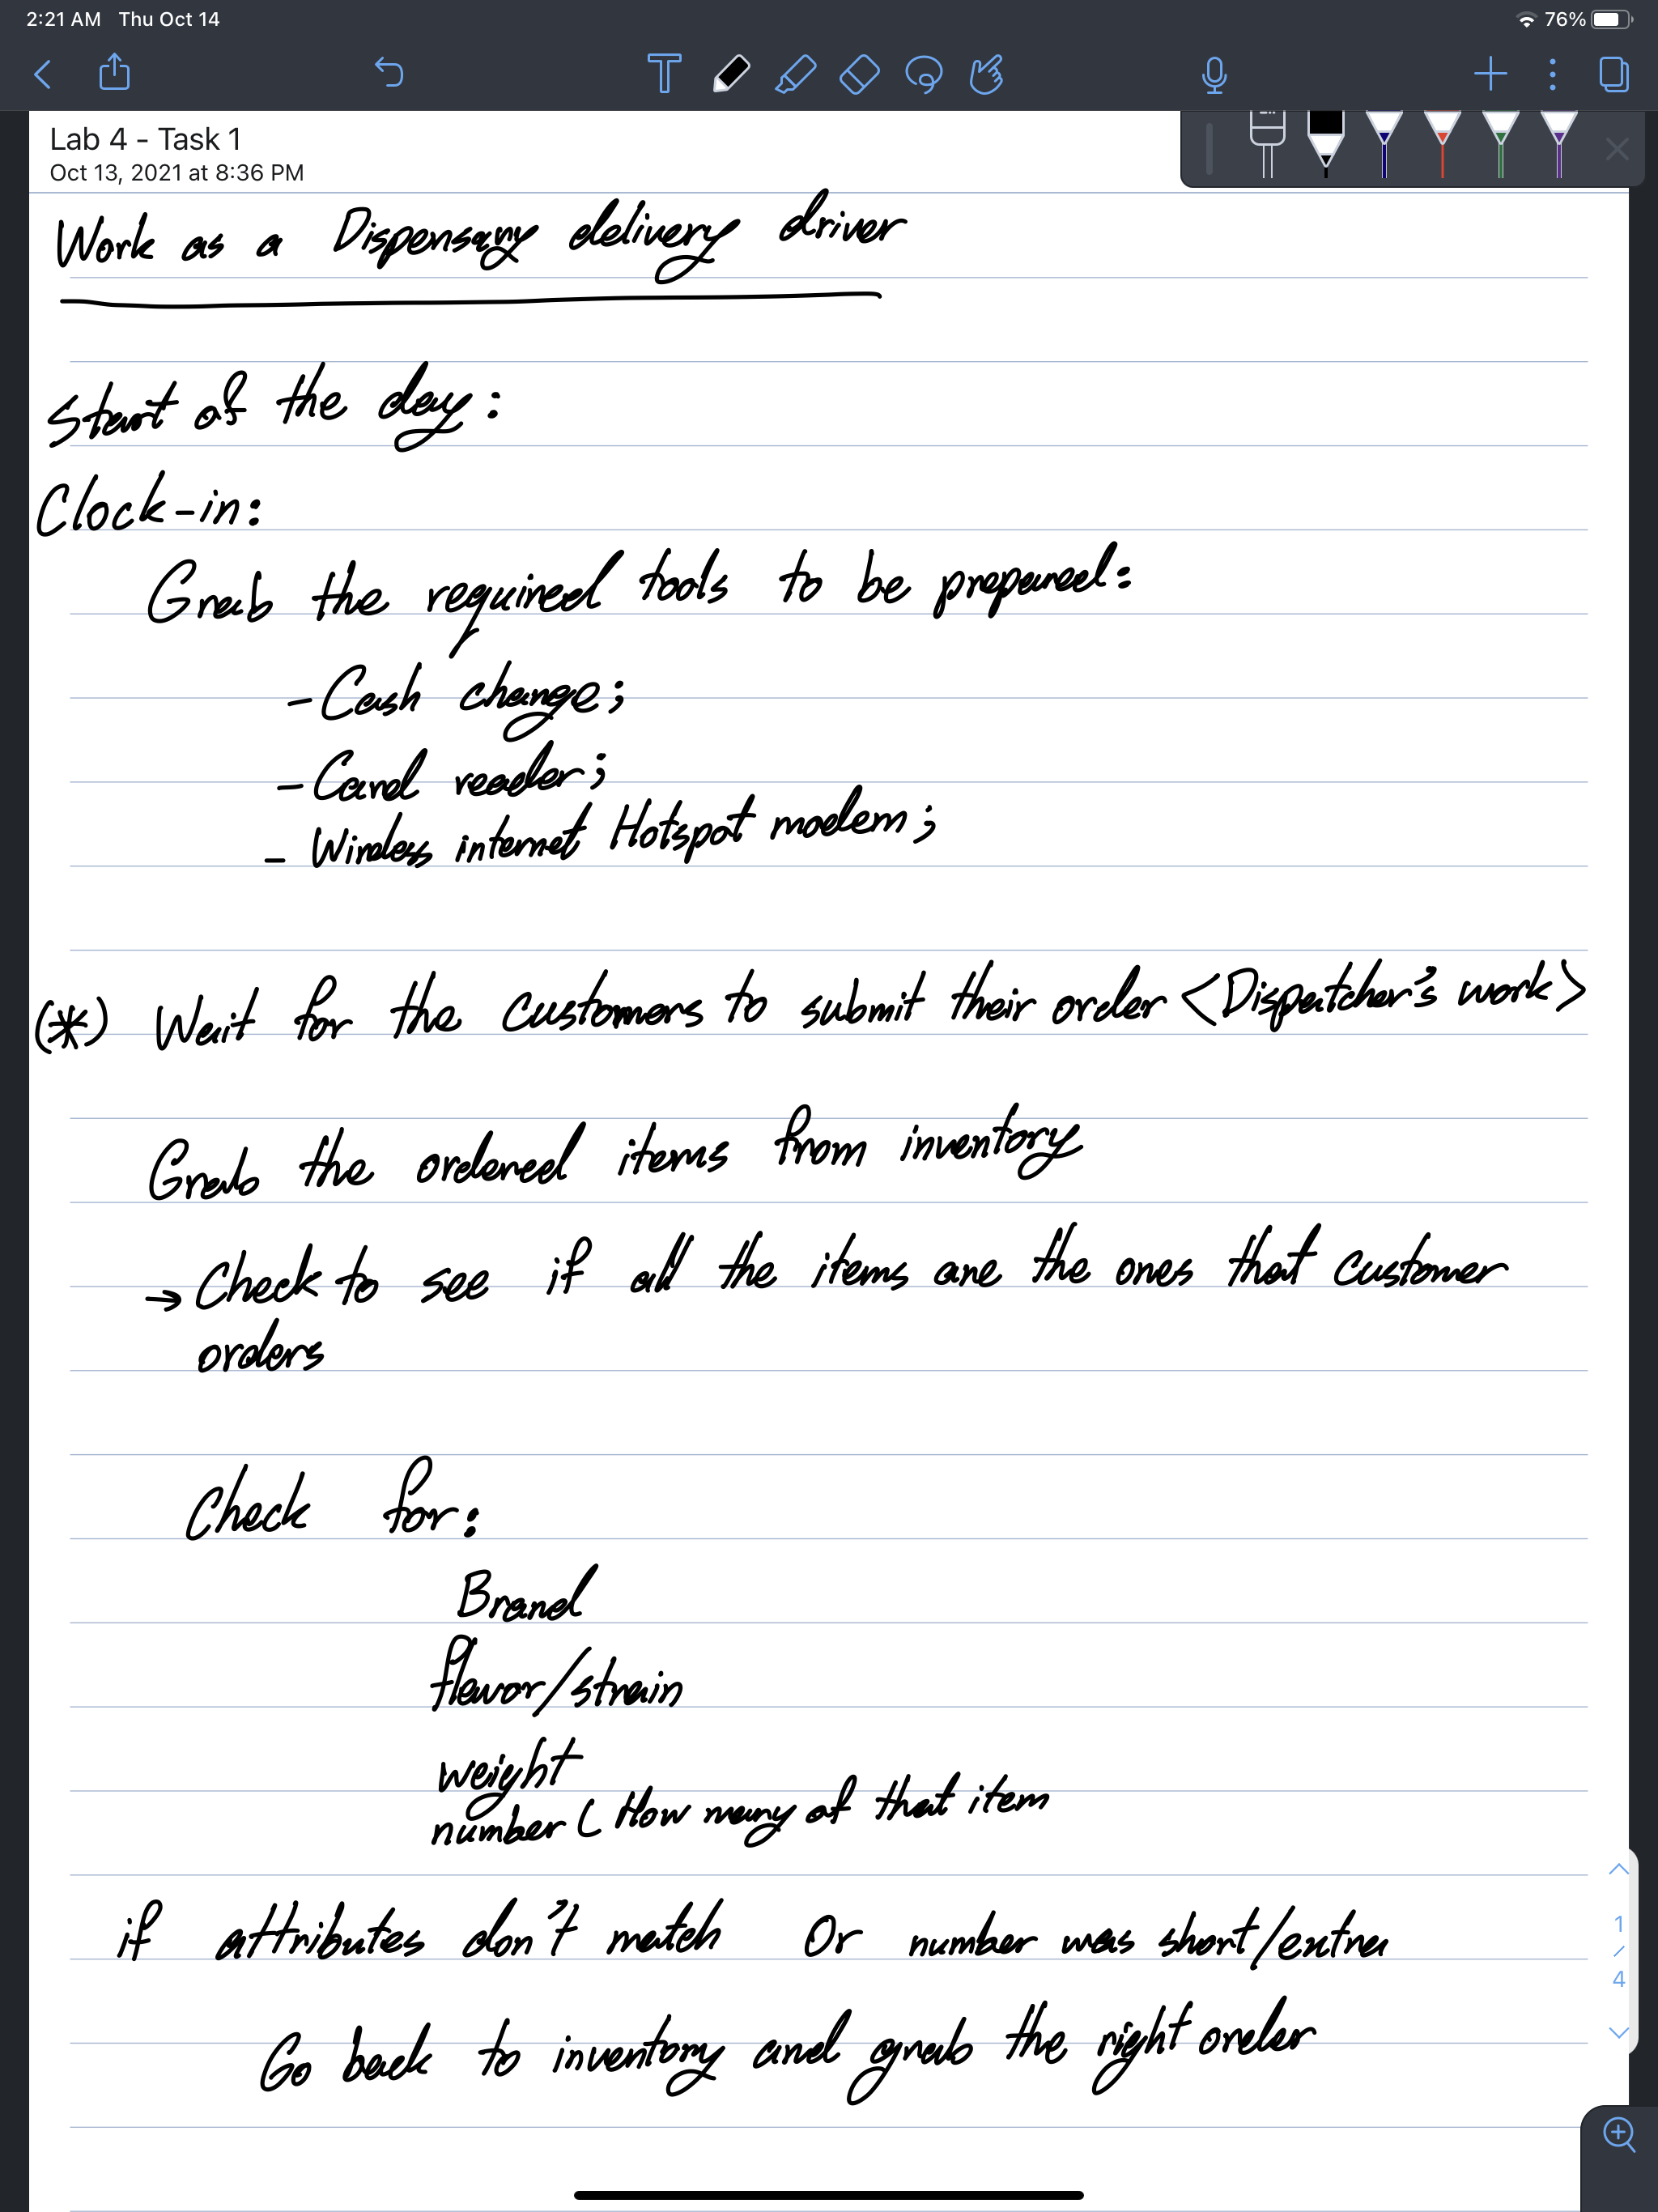 2:21 AM Thu Oct 14 76%
Lab 4 - Task 1
Oct 13, 2021 at 8:36 PM
Work as a Dispensary delivery driver
Start of the day:
Clock-in:
Grab the required tools to be prepared:
- Cash change;
- Card reader;
- Wireless internet Hotspot modem;
(*) Wait for the customers to submit their order <Dispatcher's work>
Grab the ordered items from inventory
→ Check to see if all the items are the ones that customer
orders
Check for:
Brand
flavor/strain
weight
number ( How many of that item
if attributes don't match Or number was short/extra
Go back to inventory and grab the right order
1
/
4